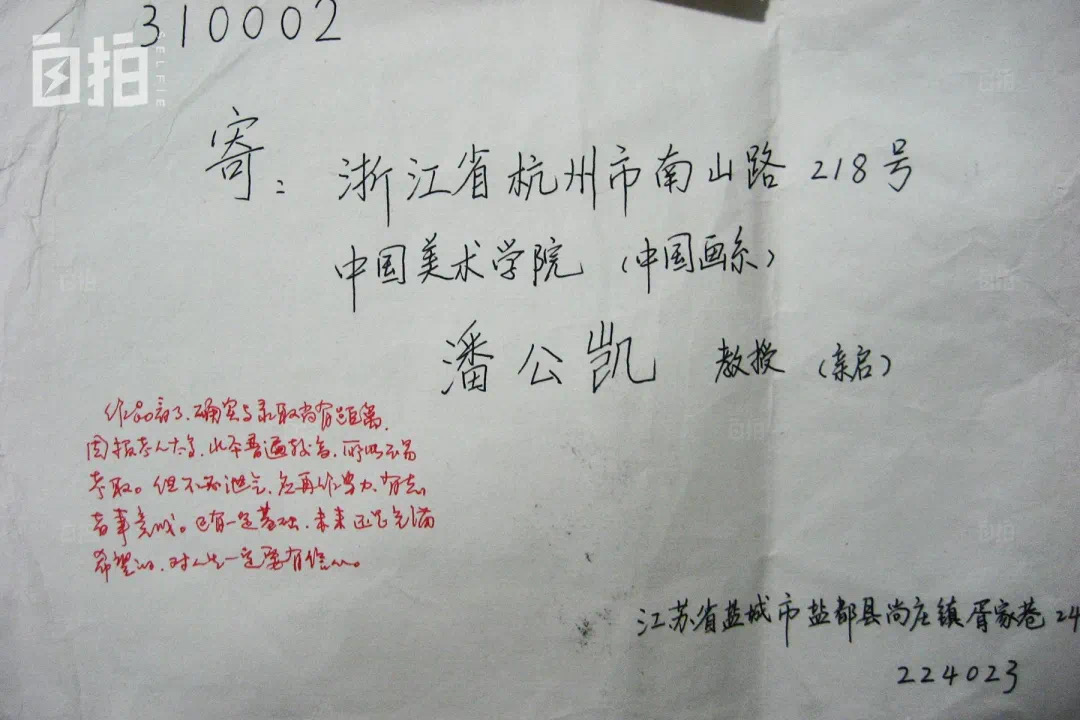 310002
自拍
SELFIE
寄：浙江省杭州市南山路218号
中国美术学院（中国画系）
潘公凯 教授（亲启）
作品看了，确实与录取尚有距离，
因报考人太多，水平普遍较高，所以不易
考取。但不必泄气，应再作努力，有志
者事竟成。已有一定基础，未来还是充满
希望的，对人生一定要有信心。
江苏省盐城市盐都县尚庄镇胥家巷24
224023